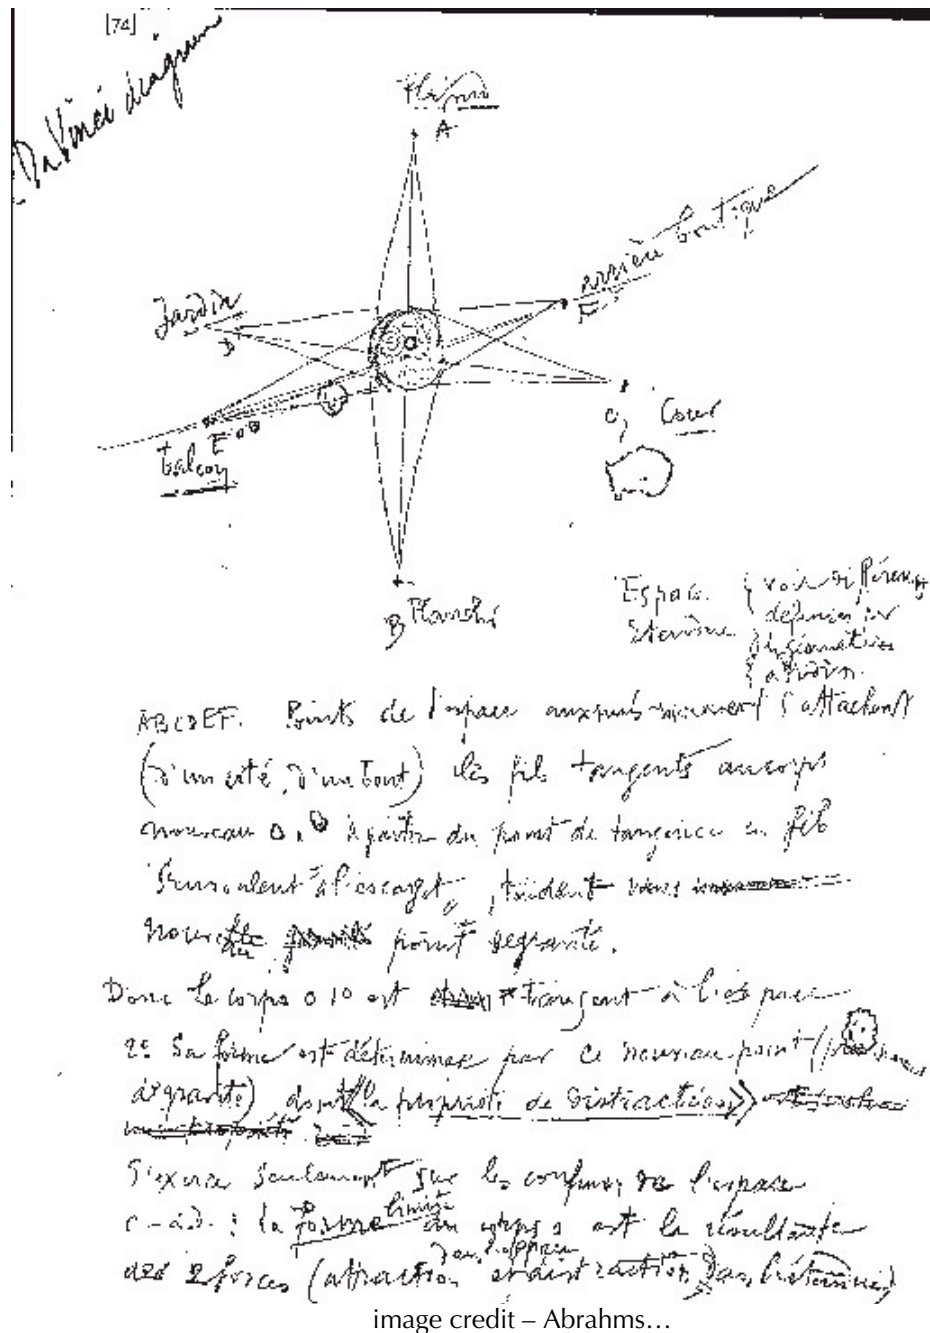 [74]
Da Vinci diagram
A
arrière boutique
Jardin
D
F
C, Cour
E
balcon
B Planché
Espace
voir
définies par
géométries
ABCDEF. Points de l'espace auxquels s'attachent
(d'un côté, d'un bout) les fils tangents au corps
nouveau 0. à partir du point de tangence ces fils
s'enroulent à l'escargot, tendent vers
nouveau point de gravité.
Donc le corps 0 1° est tangent à l'espace
2° Sa forme est déterminée par ce nouveau point
de gravité) dont «la propriété de distraction»
S'exerce seulement sur les confins de l'espace
c-à-d. : la forme limite du corps 0 est la résultante
des 2 forces (attraction dans l'espace et distraction dans l'étendue)
image credit – Abrahms…